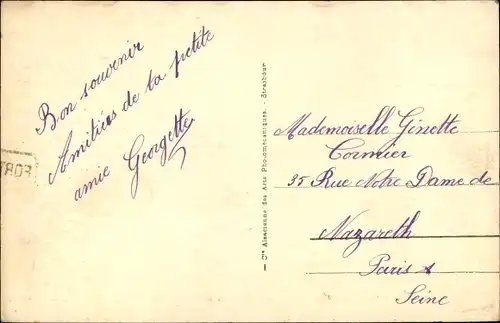 Bon souvenir
Amitiées de ta petite
amie Georgette
— Cie Alsacienne des Arts Photomécaniques. - Strasbour
Mademoiselle Ginette
Cormier
35 Rue Notre Dame de
Nazareth
Paris
Seine